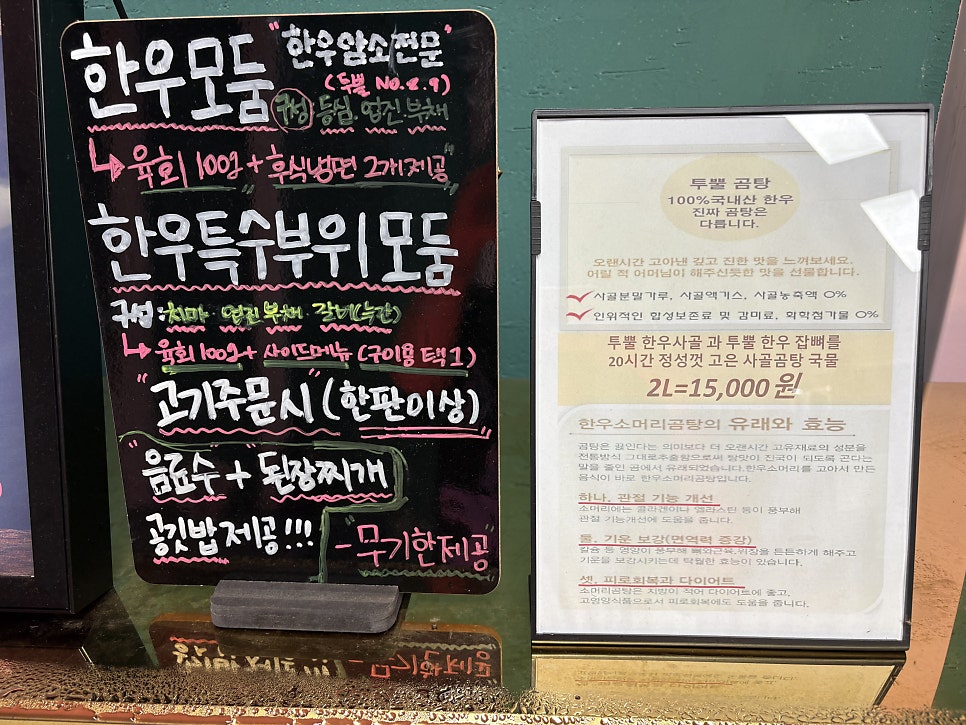 한우모둠 "한우암소전문"
(투뿔 No.8.9)
구성 등심.업진.부채
육회 100g + 후식냉면 2개제공"
한우특수부위모둠
구성: 치마.업진.부채.갈비(늑간)
육회100g+ 사이드메뉴 (구이용 택1)
"고기주문시" (한판이상)
음료수 + 된장찌개
공깃밥제공!!!
-무기한제공
투뿔 곰탕
100%국내산 한우
진짜 곰탕은
다릅니다.
오랜시간 고아낸 깊고 진한 맛을 느껴보세요.
어릴 적 어머님이 해주신듯한 맛을 선물합니다.
사골분말가루, 사골엑기스, 사골농축액 0%
인위적인 합성보존료 및 감미료, 화학첨가물 0%
투뿔 한우사골 과 투뿔 한우 잡뼈를
20시간 정성껏 고은 사골곰탕 국물
2L=15,000원
한우소머리곰탕의 유래와 효능
곰탕은 끓인다는 의미보다 더 오랜시간 고유재료의 성분을
전통방식 그대로추출함으로써 탕맛이 진국이 되도록 곤다는
말을 줄인 곰에서 유래되었습니다.한우소머리를 고아서 만든
음식이 바로 한우소머리곰탕입니다.
하나, 관절 기능 개선
소머리에는 콜라겐이나 엘라스틴 등이 풍부해
관절 기능개선에 도움을 줍니다.
둘, 기운 보강(면역력 증강)
칼슘 등 영양이 풍부해 뼈와근육,위장을 튼튼하게 해주고
기운을 보강시키는데 탁월한 효능이 있습니다.
셋, 피로회복과 다이어트
소머리곰탕은 지방이 적어 다이어트에 좋고,
고영양식품으로서 피로회복에도 도움을 줍니다.